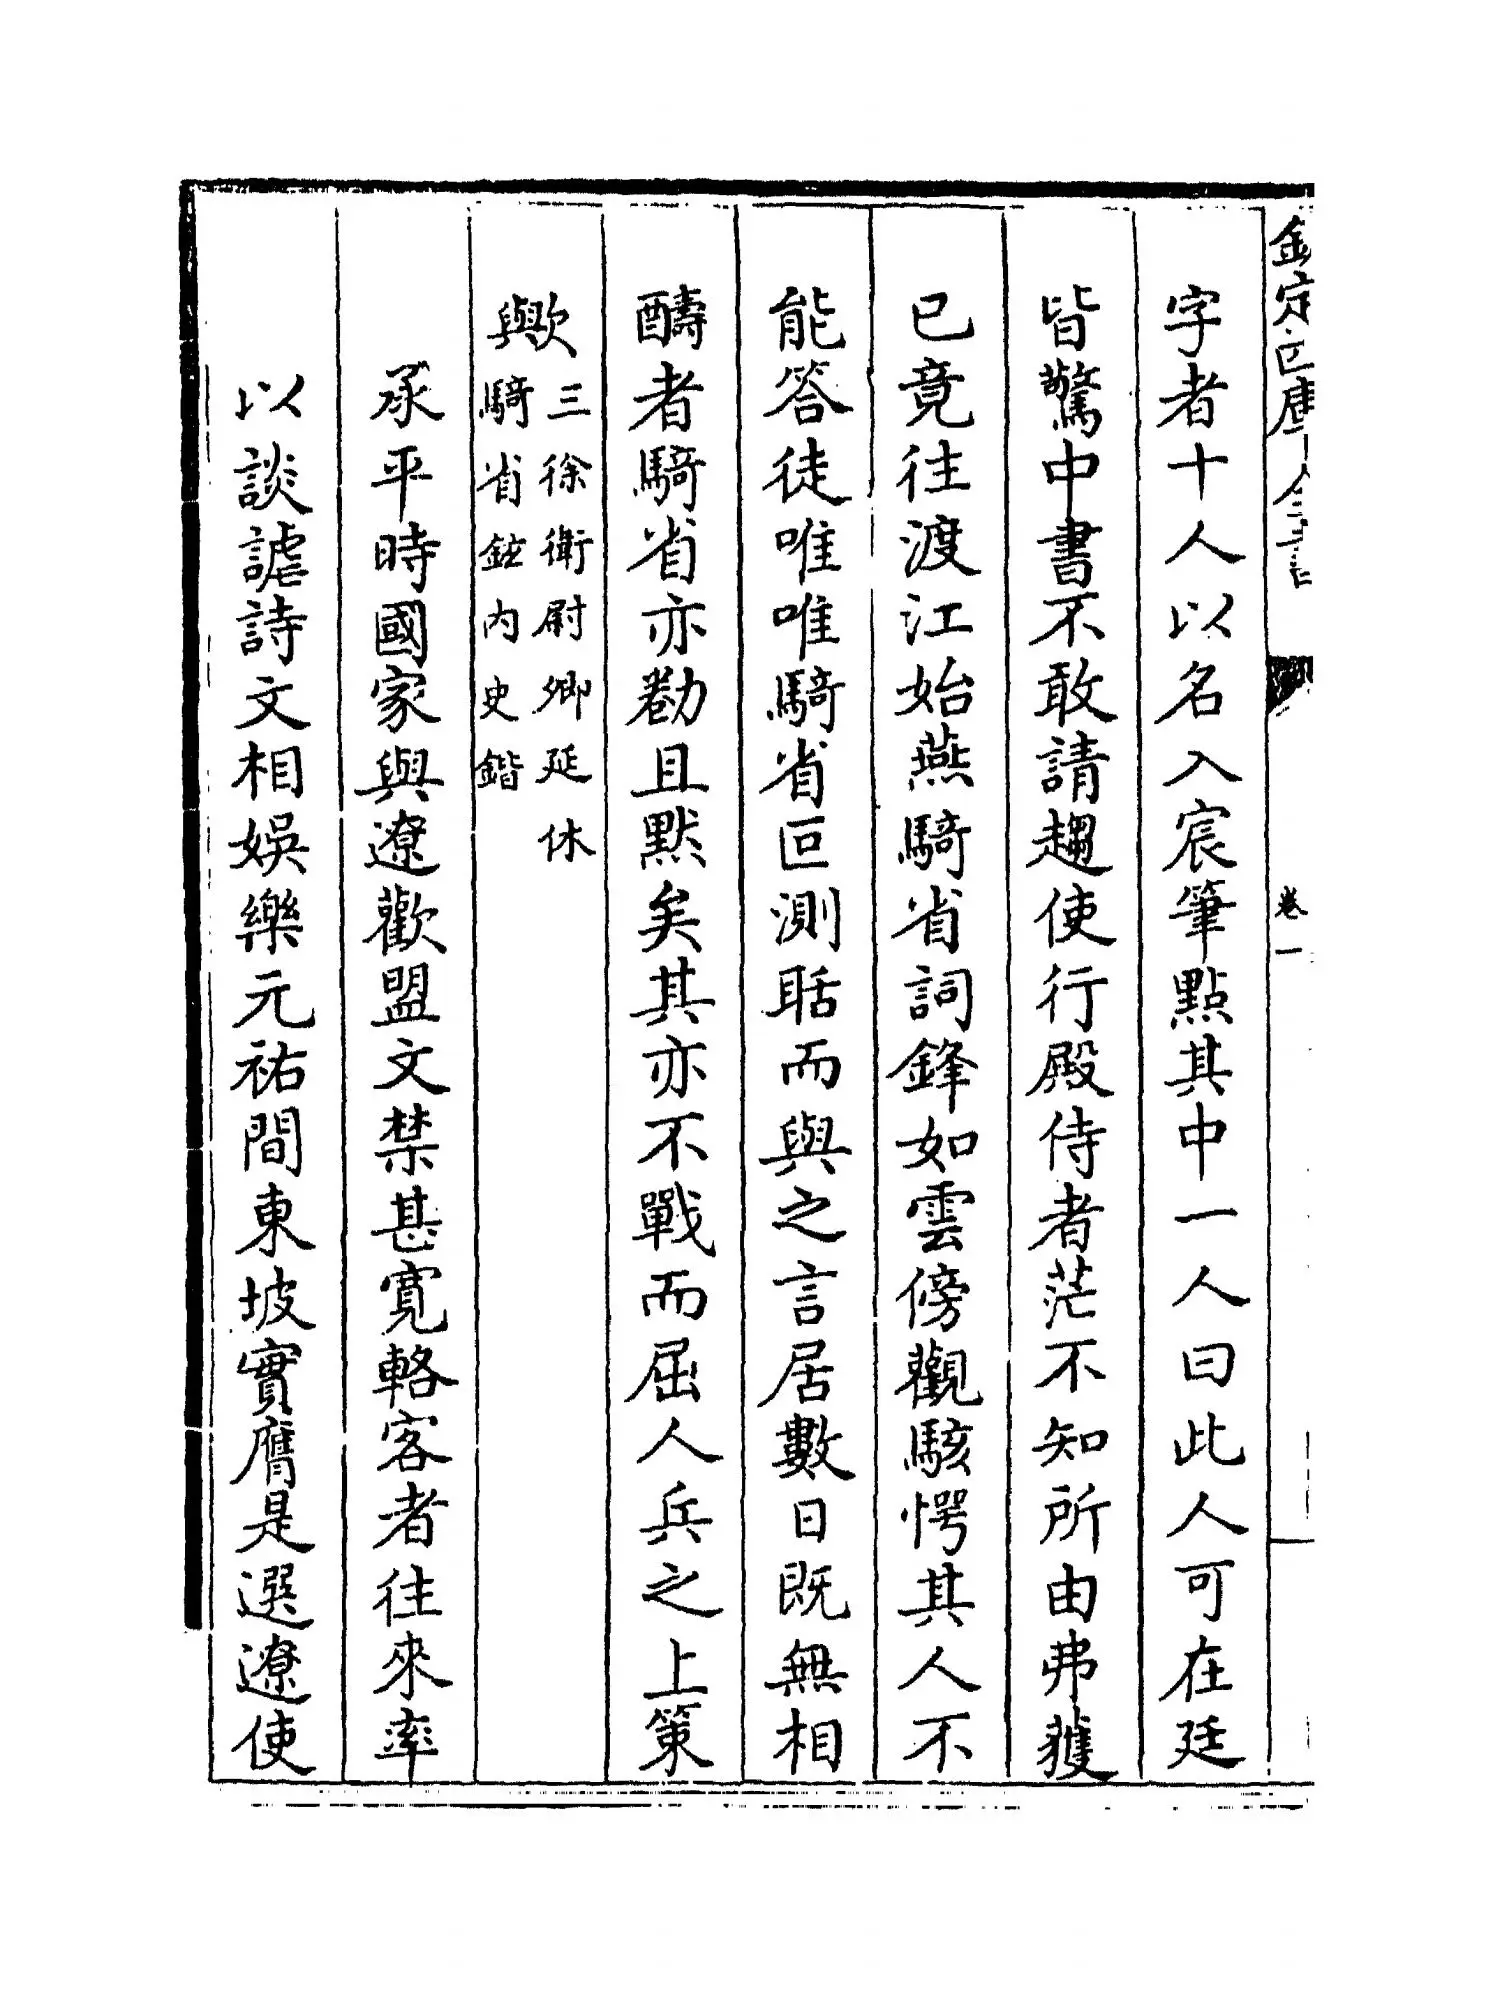 欽定四庫全書 卷一
字者十人以名入宸筆點其中一人曰此人可在廷
皆驚中書不敢請趨使行殿侍者茫不知所由弗獲
已竟往渡江始燕騎省詞鋒如雲傍觀駭愕其人不
能答徒唯唯騎省叵測聒而與之言居數日既無相
醻者騎省亦勌且默矣其亦不戰而屈人兵之上策
歟三徐衛尉卿延休
騎省鉉内史鍇
承平時國家與遼歡盟文禁甚寛輅客者往來率
以談謔詩文相娛樂元祐間東坡實膺是選遼使